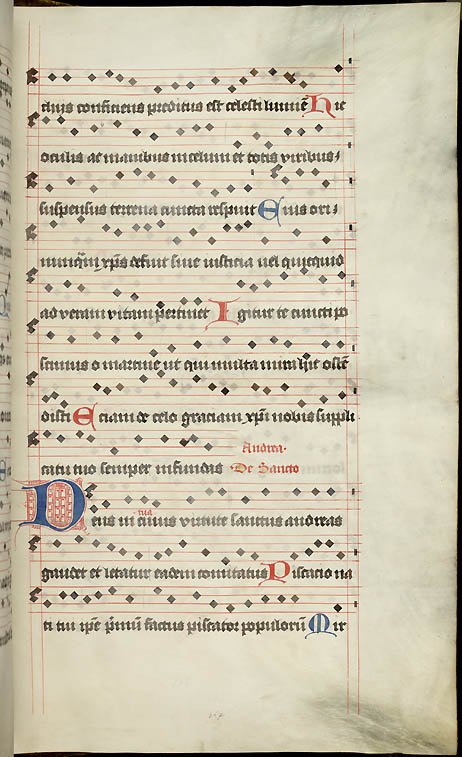 clivis conficiens preditus est celesti lumine Hic
oculis ac manibus in celum et totis viribus
suspensus terrena cuncta respuit Eius ori
nunquam xps defuit sive iusticia vel quicquid
ad veram vitam pertinet Igitur te cuncti po
scimus o martine ut qui multa mira hic osten
disti Eciam de celo graciam xpi nobis suppli
Andrea.
catu tuo semper infundas De Sancto
tua
Deus in cuius virtute sanctus andreas
gaudet et letatur eadem comitatus Piscatio na
ti tui ipse primum factus piscator populorum Mir